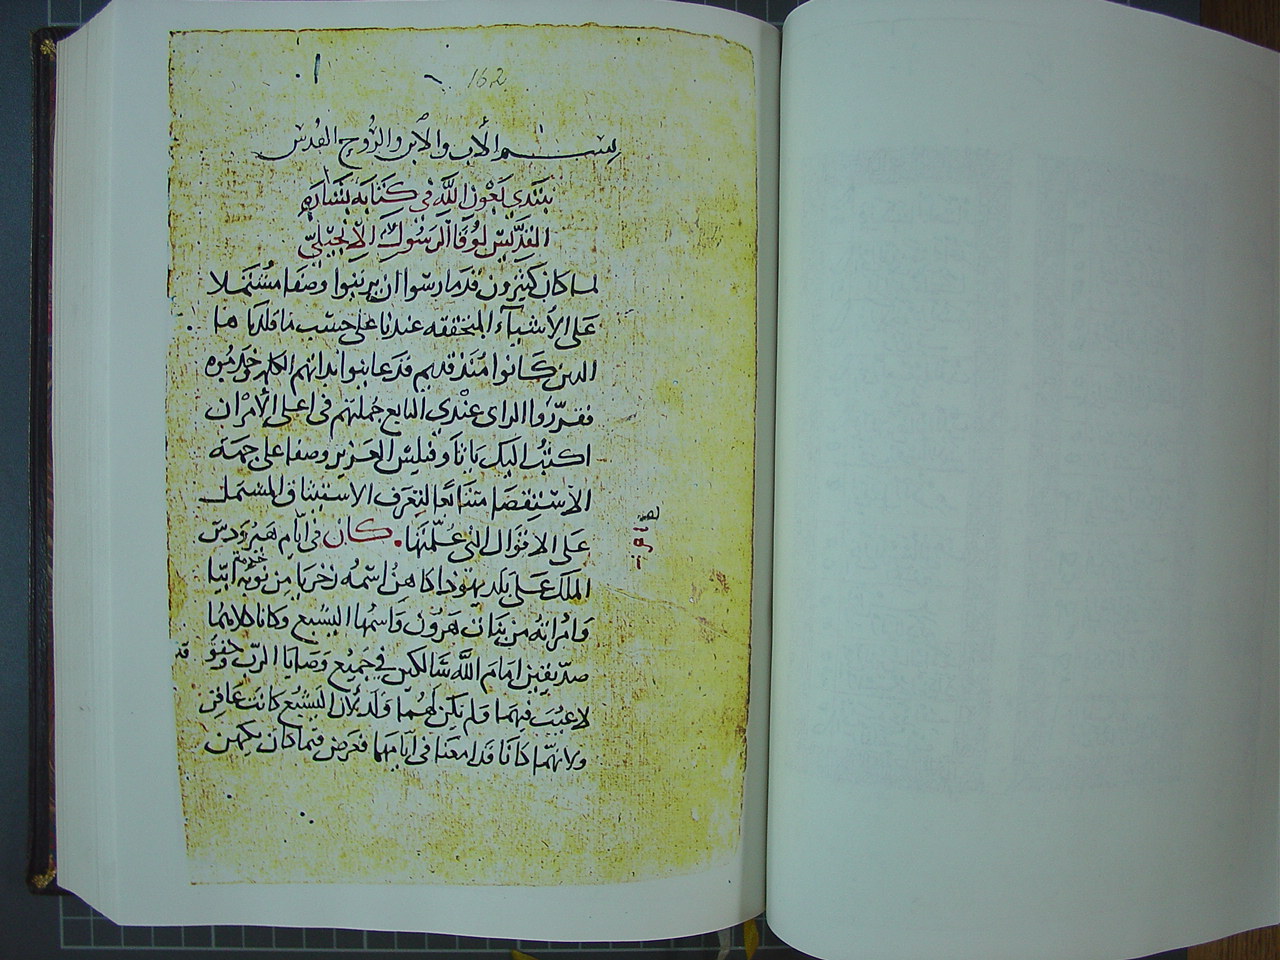 162
بسم الاب والابن والروح القدس
نبتدي بعون الله في كتابه بشاره
القديس لوقا الرسول الانجيلي
لما كان كثيرون قد مارسوا ان يرتبوا وصفا مشتملا
على الأشيآء المتحققه عندنا على حسب ما قلدنا ها
الدين كانوا منذ قديم قد عاينوا بداتهم الكلمه وخدموه
فقرروا الراي عندي التابع جملتهم في اعلى الأمر ان
اكتب اليك يا ثاوفيليس العزيز وصفا على جهة
الاستقصا متتابعا لتعرف الاستيثاق المشتمل
على الاقوال التي عُلّمتها. كان في ايام هيرودس
الملك على بلد يهوذا كاهن اسمه زخريا من نوبة خدمة ابيا
وامراته من بنات هرون واسمها اليشبع وكانا كلاهما
صديقين امام الله سالكين في جميع وصايا الرب وحقوقه
لا عيب فيهما ولم يكن لهما ولد لان اليشبع كانت عاقر
ولانهما كانا قد امعنا في ايامهما فعرض فيما كان يكهن